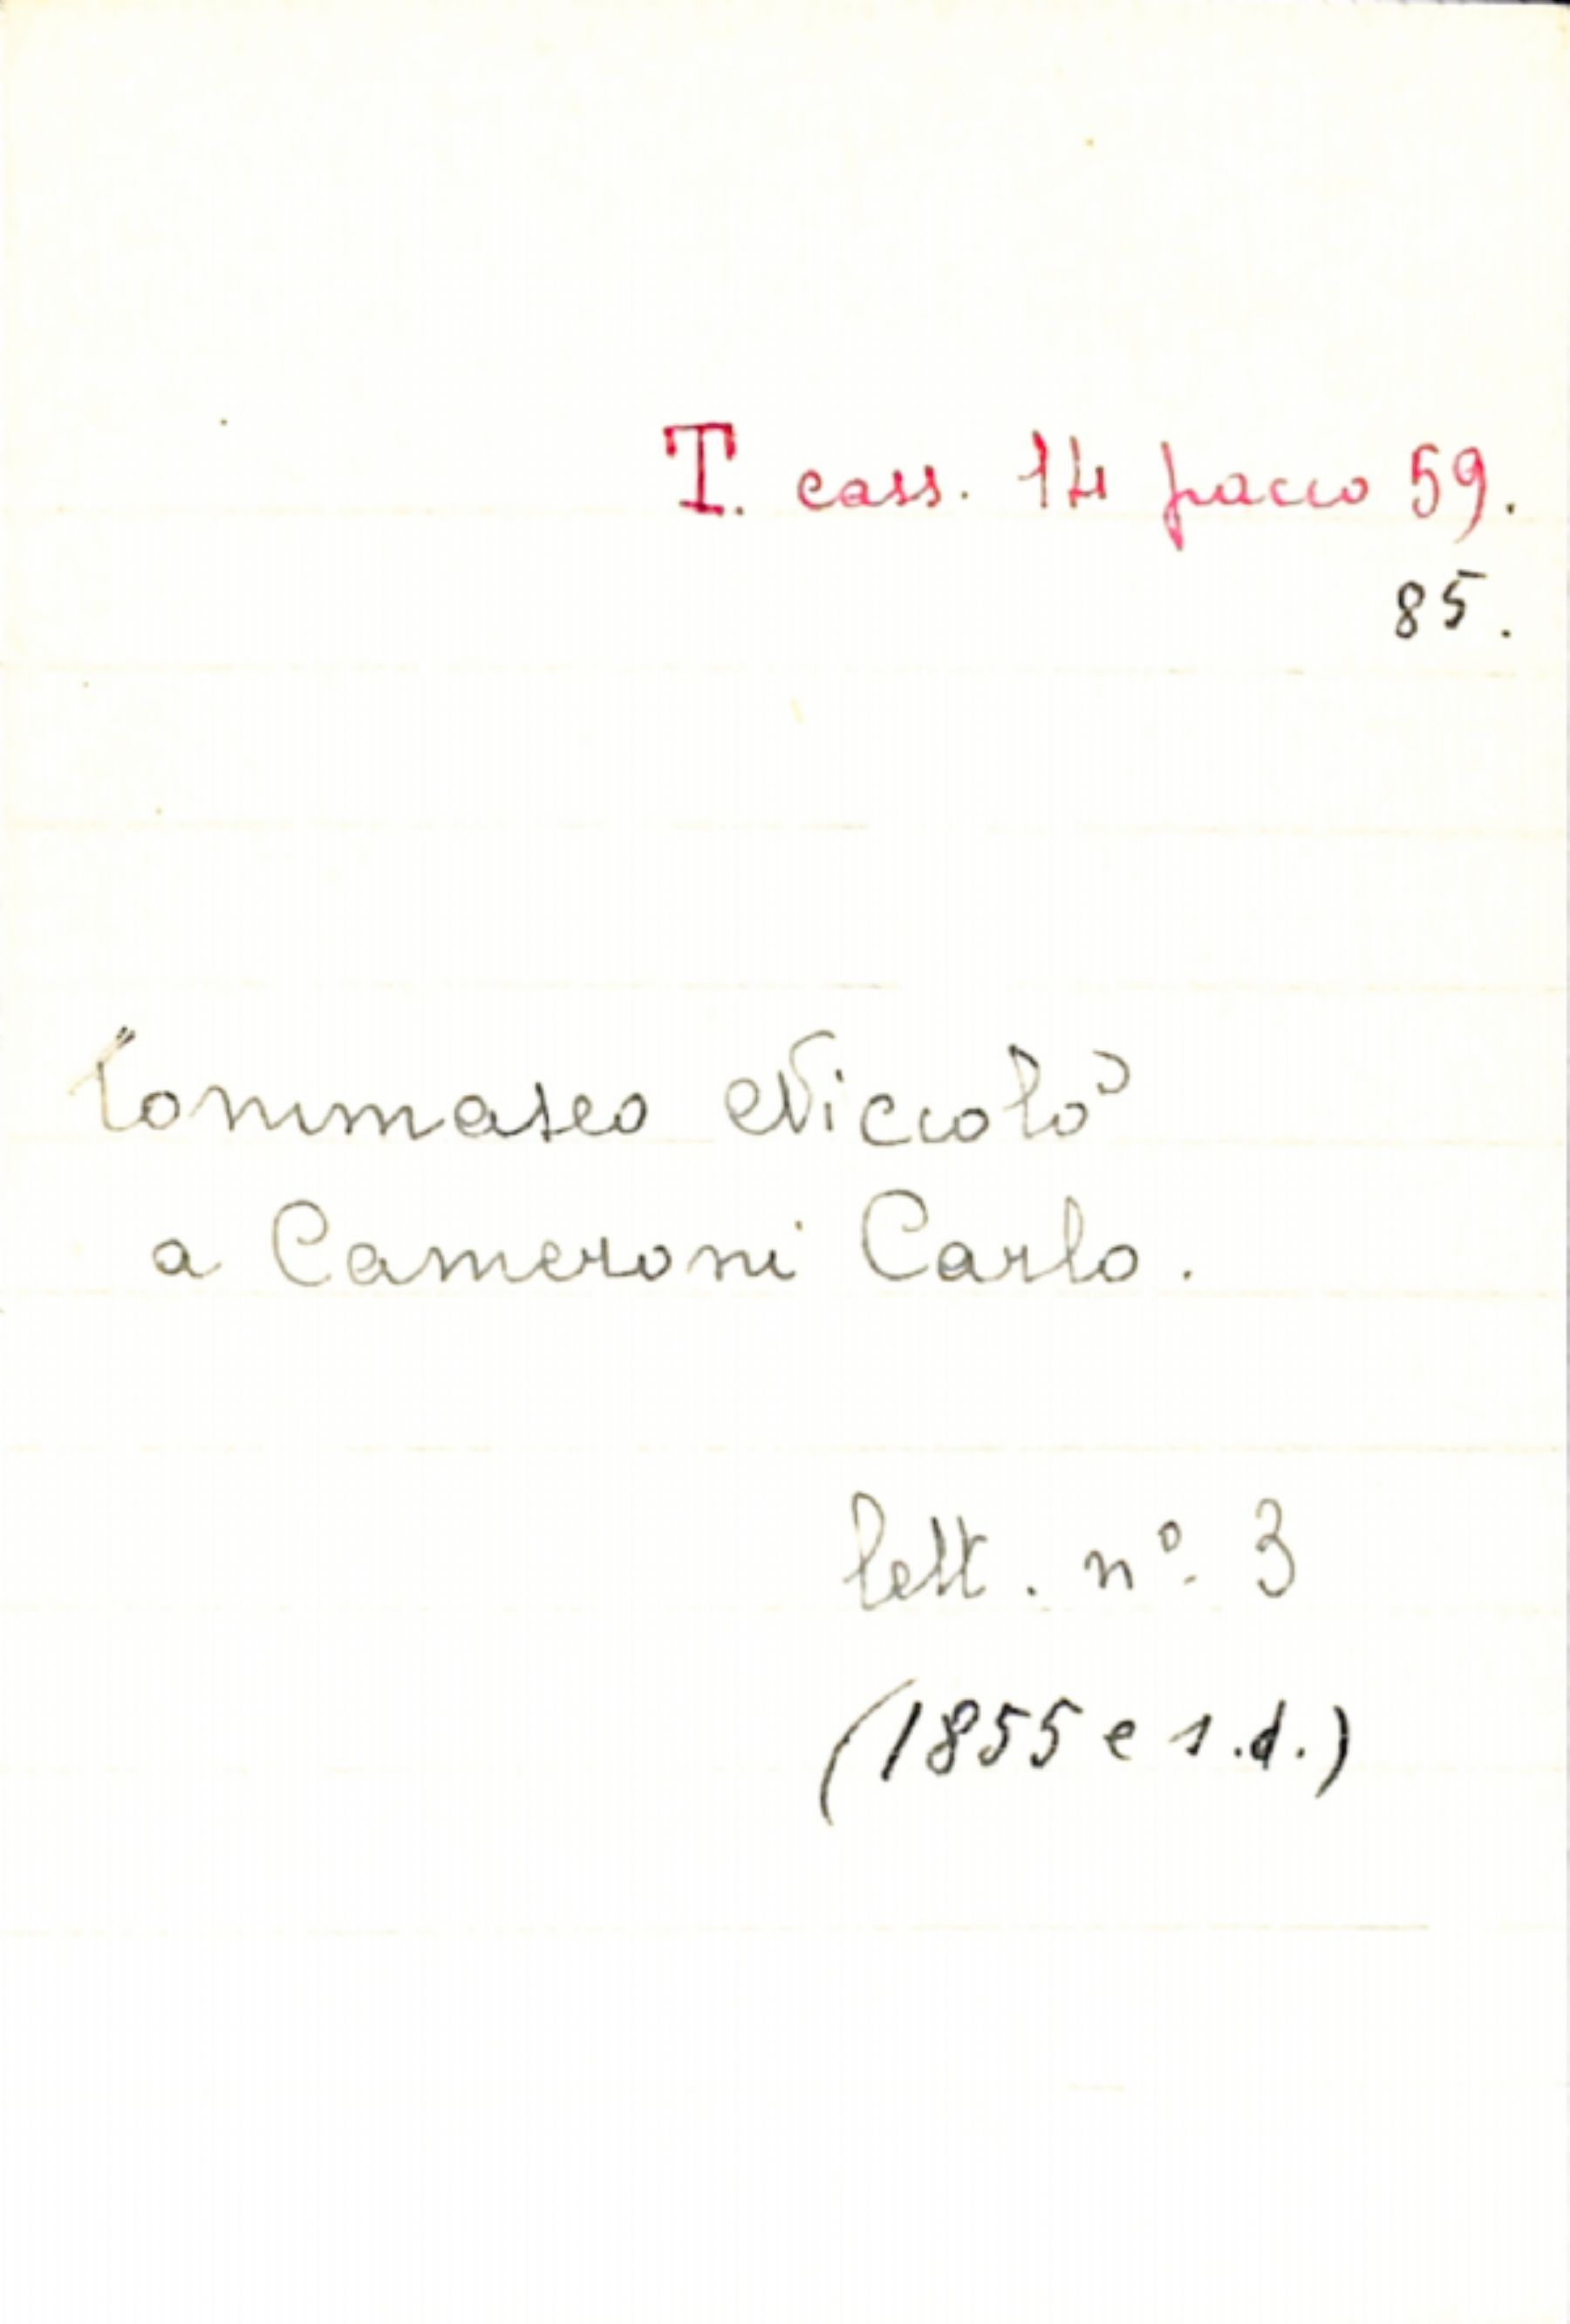 T. cass. 14 pacco 59.
85.
Tommaseo Niccolò
a Cameroni Carlo.
lett. nº. 3
(1855 e s.d.)